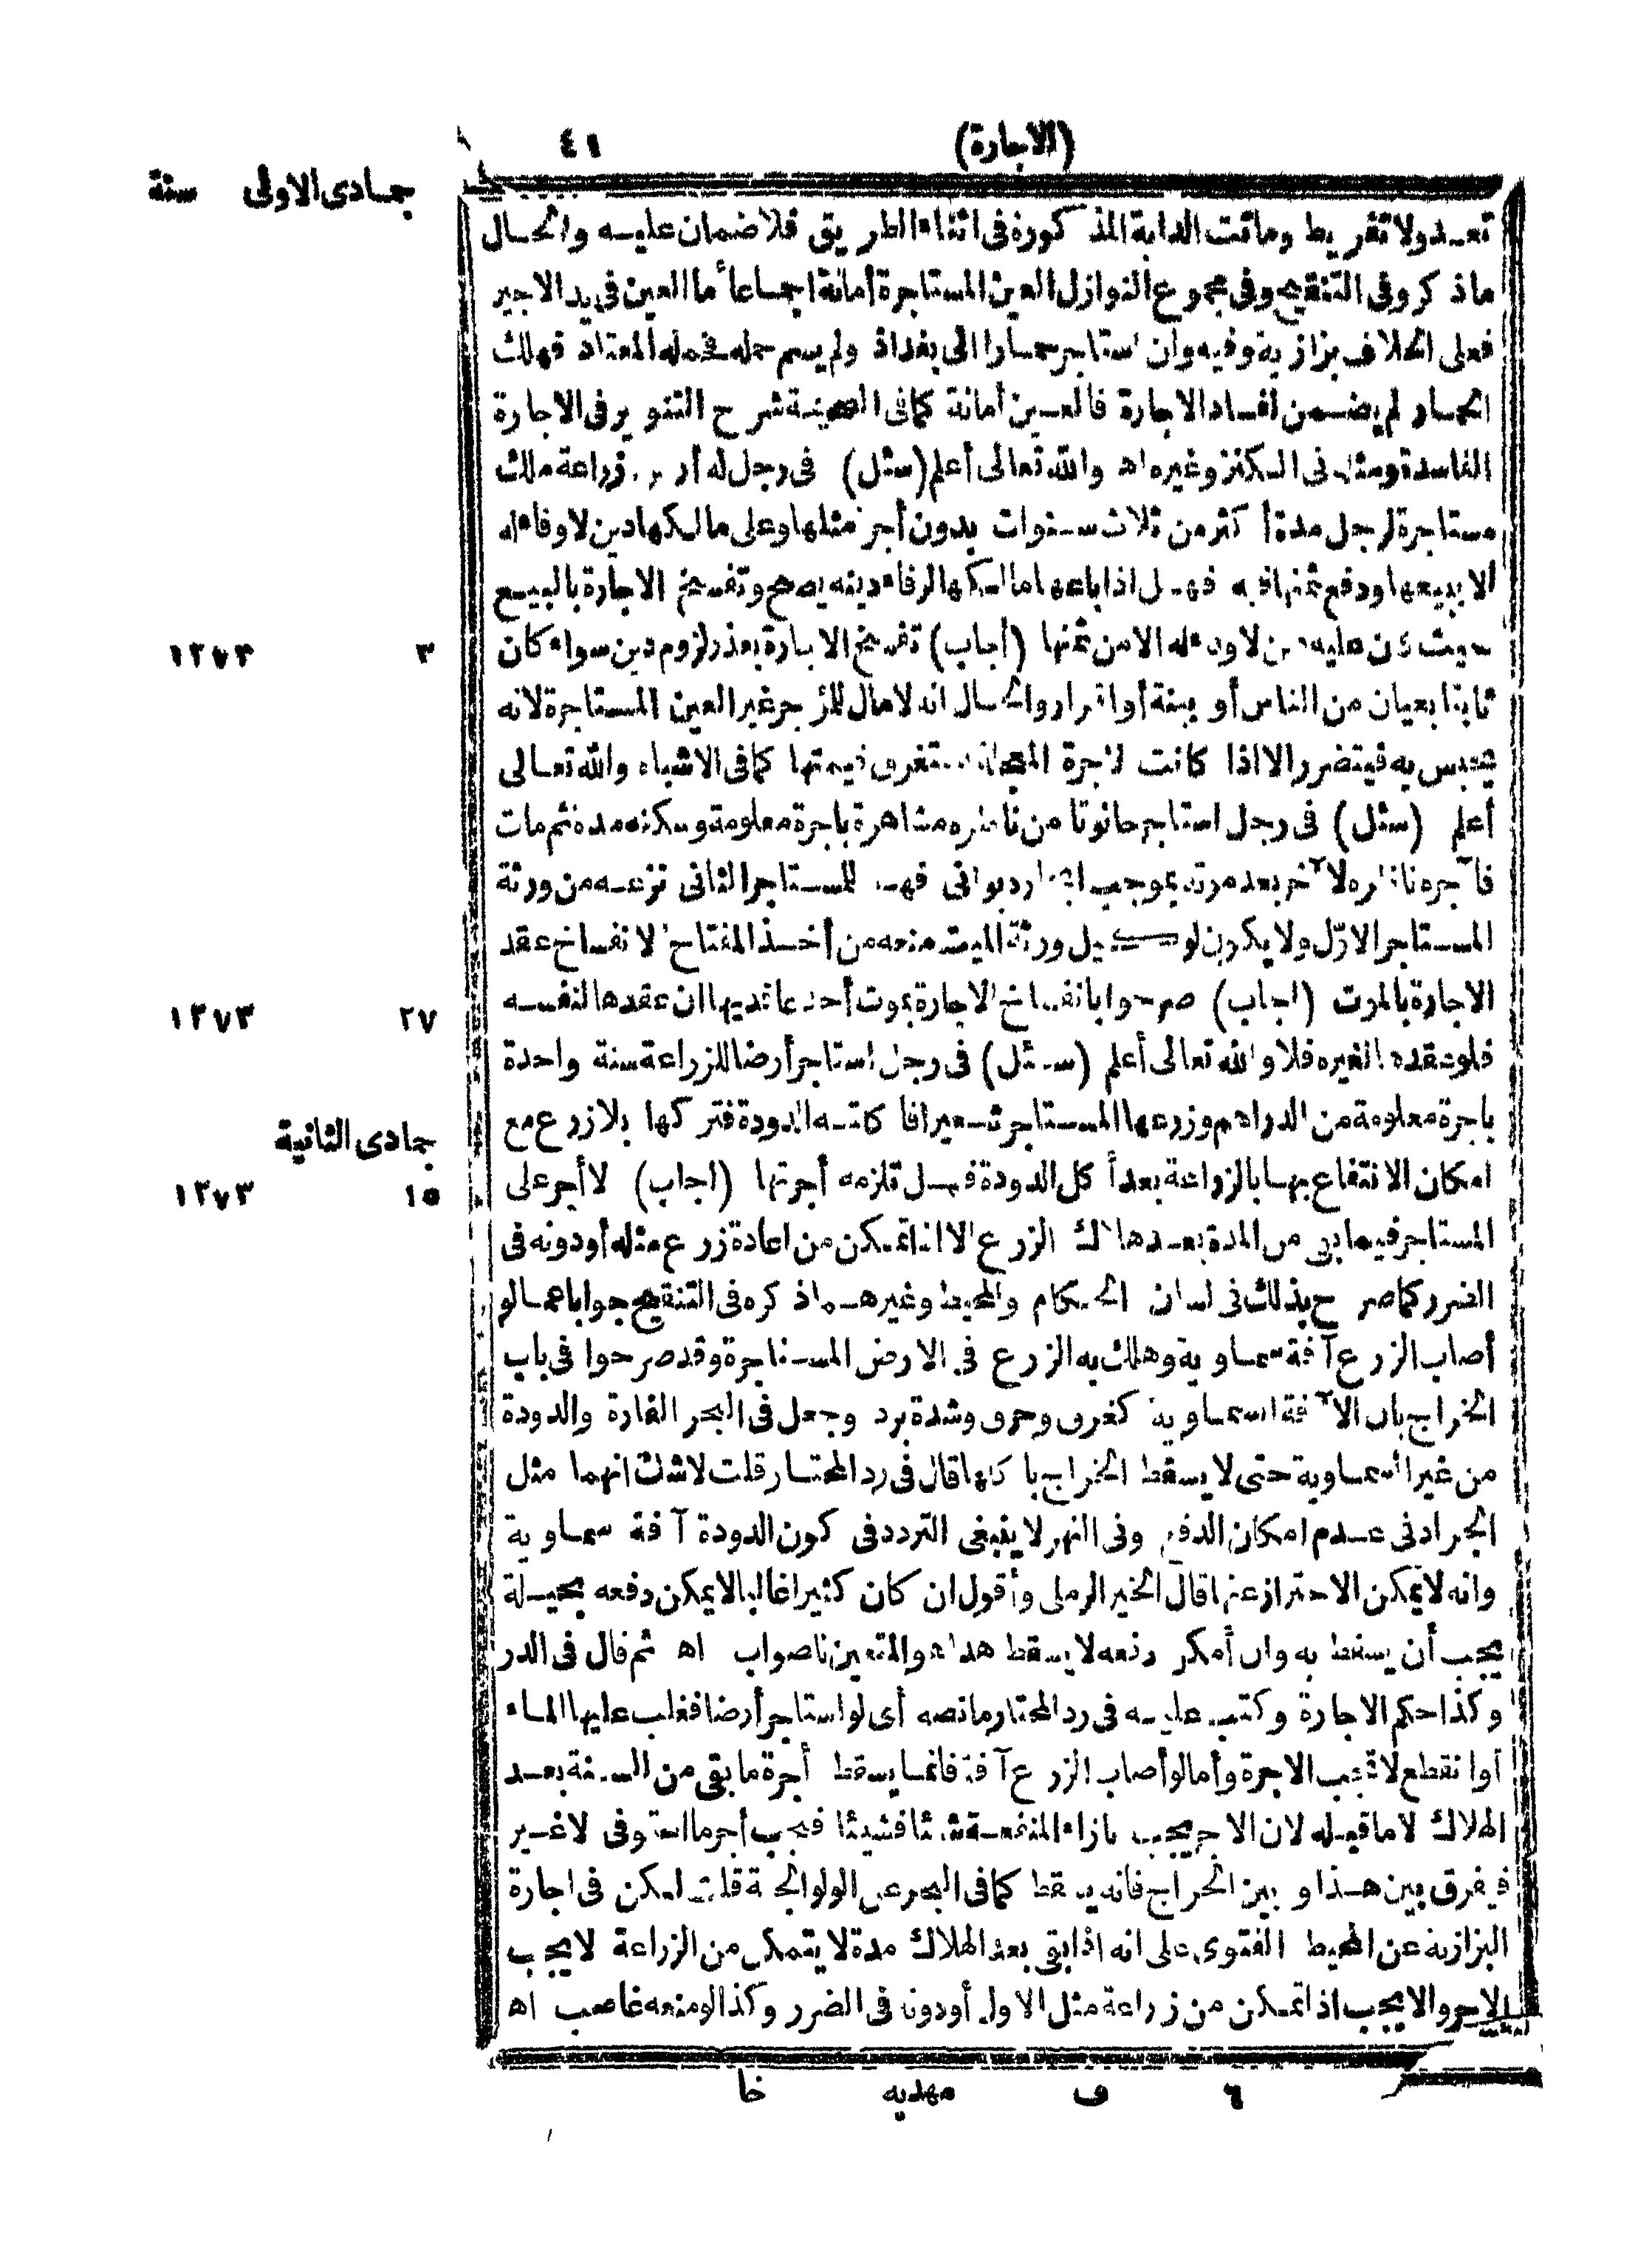 (الاجارة) ٤١
جمادى الاولى سنة
تعد ولا تفريط وماتت الدابة المذكورة فى اثناء الطريق فلا ضمان عليه والحال
ما ذكر وفى التنقيح وفى مجموع النوازل العين المستاجرة أمانة اجماعا أما العين فى يد الاجير
فعلى الخلاف بزازية وفيه وان استاجر حمارا الى بغداد ولم يسم حمله فحمله المعتاد فهلك
الحمار لم يضمن لفساد الاجارة فالعين أمانة كما فى الصحيحة شرح التنوير فى الاجارة
الفاسدة ومثله فى الكنز وغيره اه والله تعالى أعلم (سئل) فى رجل له أرض زراعة ملك
مستاجرة لرجل مدة أكثر من ثلاث سنوات بدون أجر مثلها وعلى مالكها دين لا وفاء له
الا ببيعها ودفع ثمنها فيه فهل اذا باعها مالكها لوفاء دينه يصح وتفسخ الاجارة بالبيع
حيث كان عليه دين لا وفاء له الا من ثمنها (أجاب) تفسخ الاجارة بعذر لزوم دين سواء كان
٣ ١٢٧٣
ثابتا بعيان من الناس أو بينة أو اقرار والحال انه لا مال للمؤجر غير العين المستاجرة لانه
يحبس به فيتضرر الا اذا كانت الاجرة المعجلة تستغرق قيمتها كما فى الاشباه والله تعالى
أعلم (سئل) فى رجل استاجر حانوتا من ناظره مشاهرة باجرة معلومة وسكنه مدة ثم مات
فآجره ناظره لآخر بعد موته بموجب ايجار ديوانى فهل للمستاجر الثانى نزعه من ورثة
المستاجر الاول ولا يكون لوكيل ورثة الميت منعه من أخذ المفتاح لانفساخ عقد
الاجارة بالموت (اجاب) صرحوا بانفساخ الاجارة بموت أحد عاقديها ان عقدها لنفسه
٢٧ ١٢٧٣
فلو عقدها لغيره فلا والله تعالى أعلم (سئل) فى رجل استاجر أرضا للزراعة سنة واحدة
باجرة معلومة من الدراهم وزرعها المستاجر شعيرا فاكلته الدودة فتركها بلا زرع مع
جمادى الثانية
امكان الانتفاع بها بالزراعة بعد أكل الدودة فهل تلزمه أجرتها (اجاب) لا أجر على
١٥ ١٢٧٣
المستاجر فيما بقى من المدة بعد هلاك الزرع الا اذا تمكن من اعادة زرع مثله أو دونه فى
الضرر كما صرح بذلك فى لسان الحكام والمحيط وغيرهما ذكره فى التنقيح جوابا عما لو
أصاب الزرع آفة سماوية وهلك به الزرع فى الارض المستاجرة وقد صرحوا فى باب
الخراج بان الآفة السماوية كغرق وحرق وشدة برد وجعل فى البحر الفارة والدودة
من غير السماوية حتى لا يسقط الخراج باكلها قال فى رد المحتار قلت لا شك انهما مثل
الجراد فى عدم امكان الدفع وفى النهر لا ينبغى التردد فى كون الدودة آفة سماوية
وانه لا يمكن الاحتراز عنها قال الخير الرملى وأقول ان كان كثيرا غالبا لا يمكن دفعه بحيلة
يجب أن يسقط به وان أمكن دفعه لا يسقط هذا هو المتعين للصواب اه ثم قال فى الدر
وكذا حكم الاجارة وكتب عليه فى رد المحتار ما نصه أى لو استاجر أرضا فغلب عليها الماء
أو انقطع لا تجب الاجرة وأما لو أصاب الزرع آفة فانما يسقط أجرة ما بقى من السنة بعد
الهلاك لا ما قبله لان الاجر يجب بازاء المنفعة شيئا فشيئا فيجب أجر ما استوفى لا غير
فيفرق بين هذا وبين الخراج فانه يسقط كما فى البحر عن الولوالجية قلت لكن فى اجارة
البزازية عن المحيط الفتوى على انه اذا بقى بعد الهلاك مدة لا يتمكن من الزراعة لا يجب
الاجر والا يجب اذا تمكن من زراعة مثل الاول أو دونه فى الضرر وكذا لو منعه غاصب اه
٦ ف مهديه خا